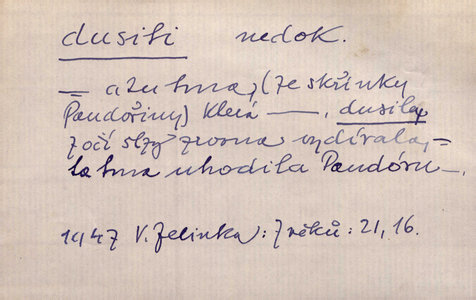 dusiti nedok.
— a tu tma, (ze skřínky
Pandořiny) která —, dusila,
z očí slzy zrovna vydírala, =
ta tma uhodila Pandóru —.
1947 V. Zelinka: Z věků: 21, 16.